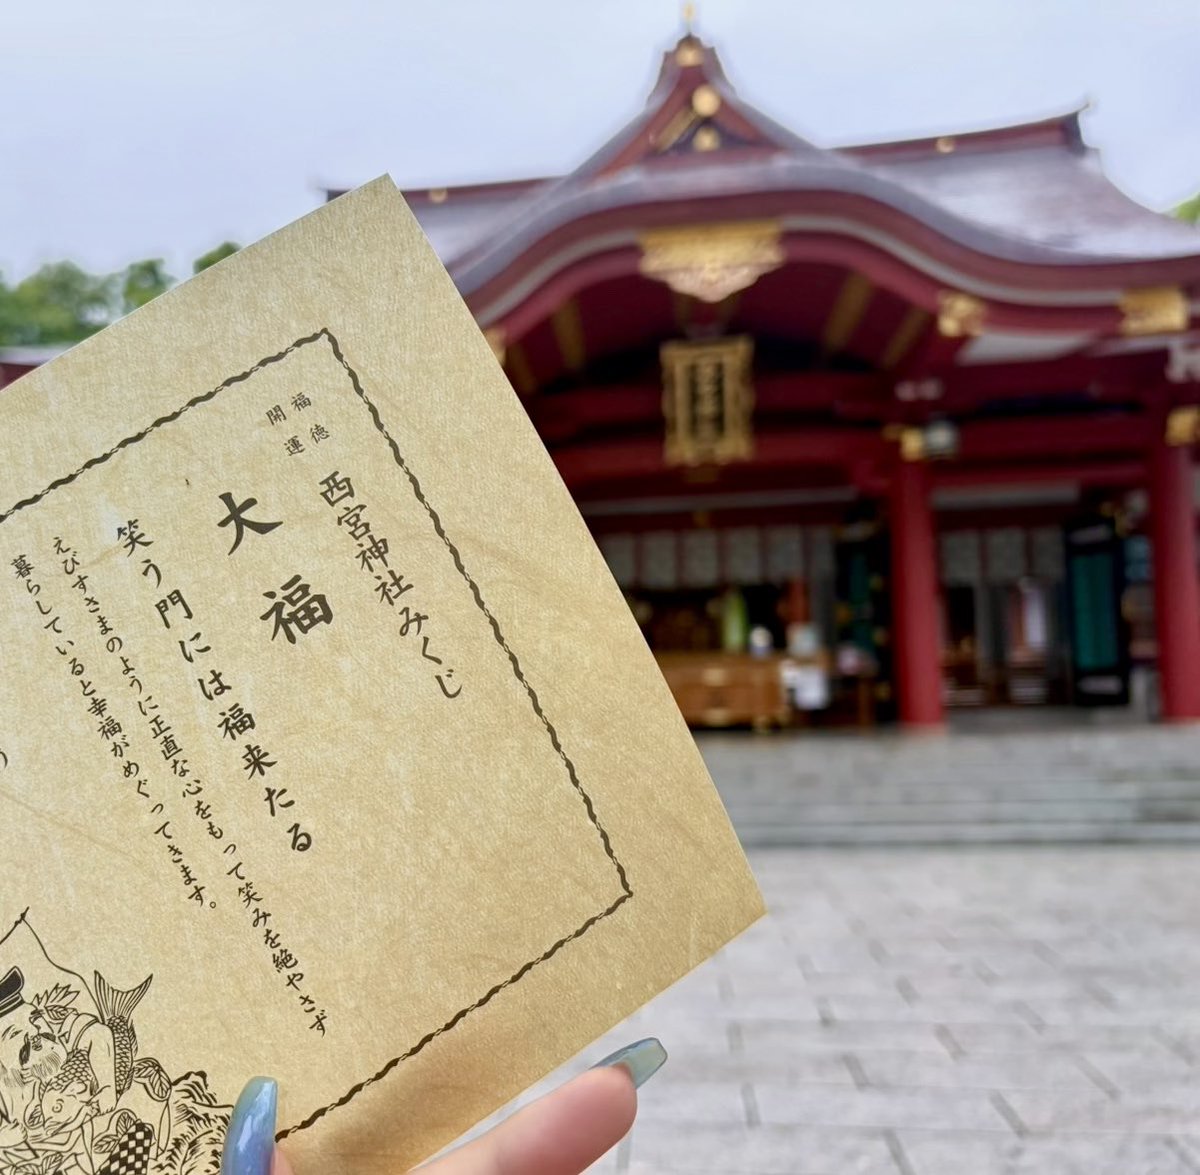 福徳
開運
西宮神社みくじ
大福
笑う門には福来たる
えびすさまのように正直な心をもって笑みを絶やさず
暮らしていると幸福がめぐってきます。